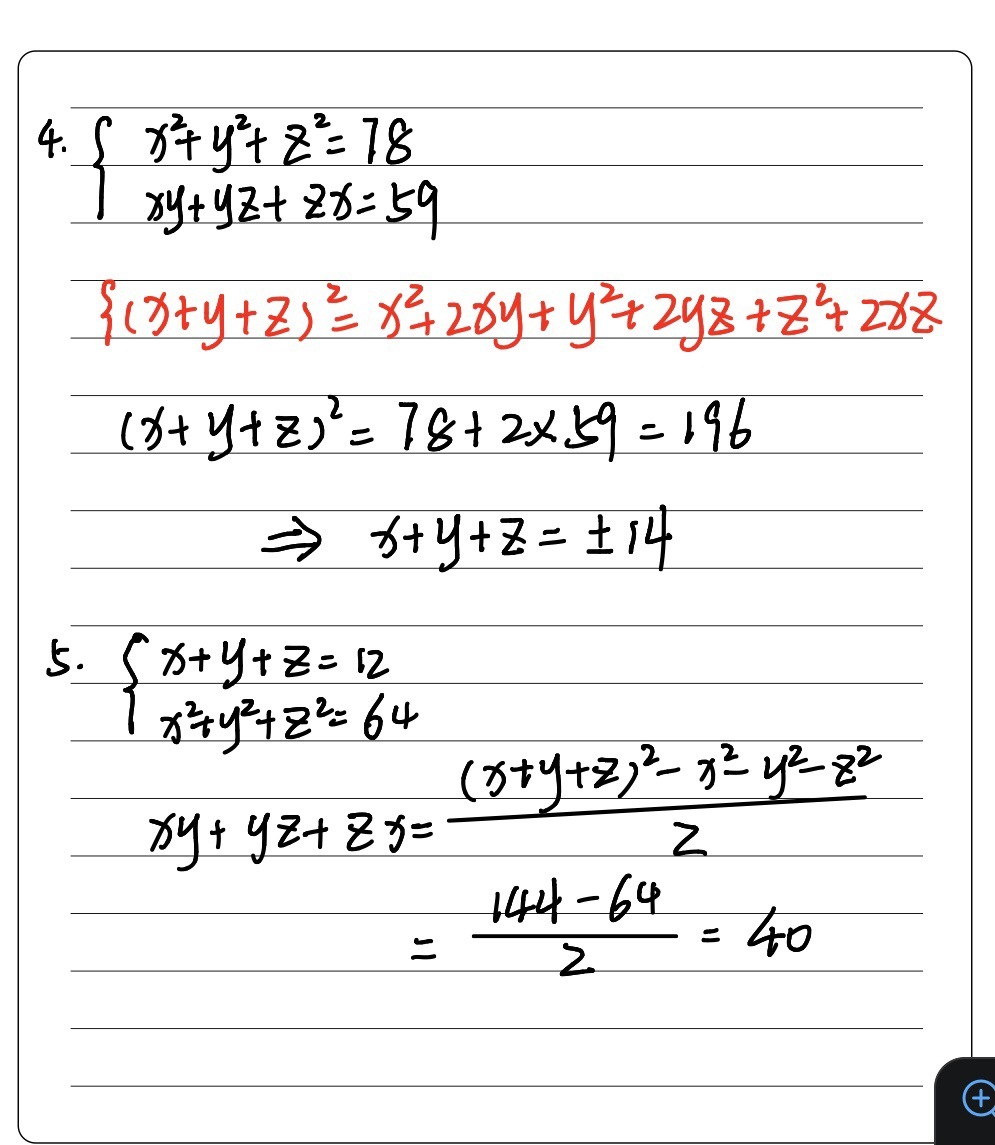 4. { x²+y²+z²=78
xy+yz+zx=59
{(x+y+z)²=x²+2xy+y²+2yz+z²+2xz
(x+y+z)²=78+2×59=196
⇒ x+y+z=±14
5. { x+y+z=12
x²+y²+z²=64
xy+yz+zx=((x+y+z)²-x²-y²-z²)/2
=(144-64)/2=40